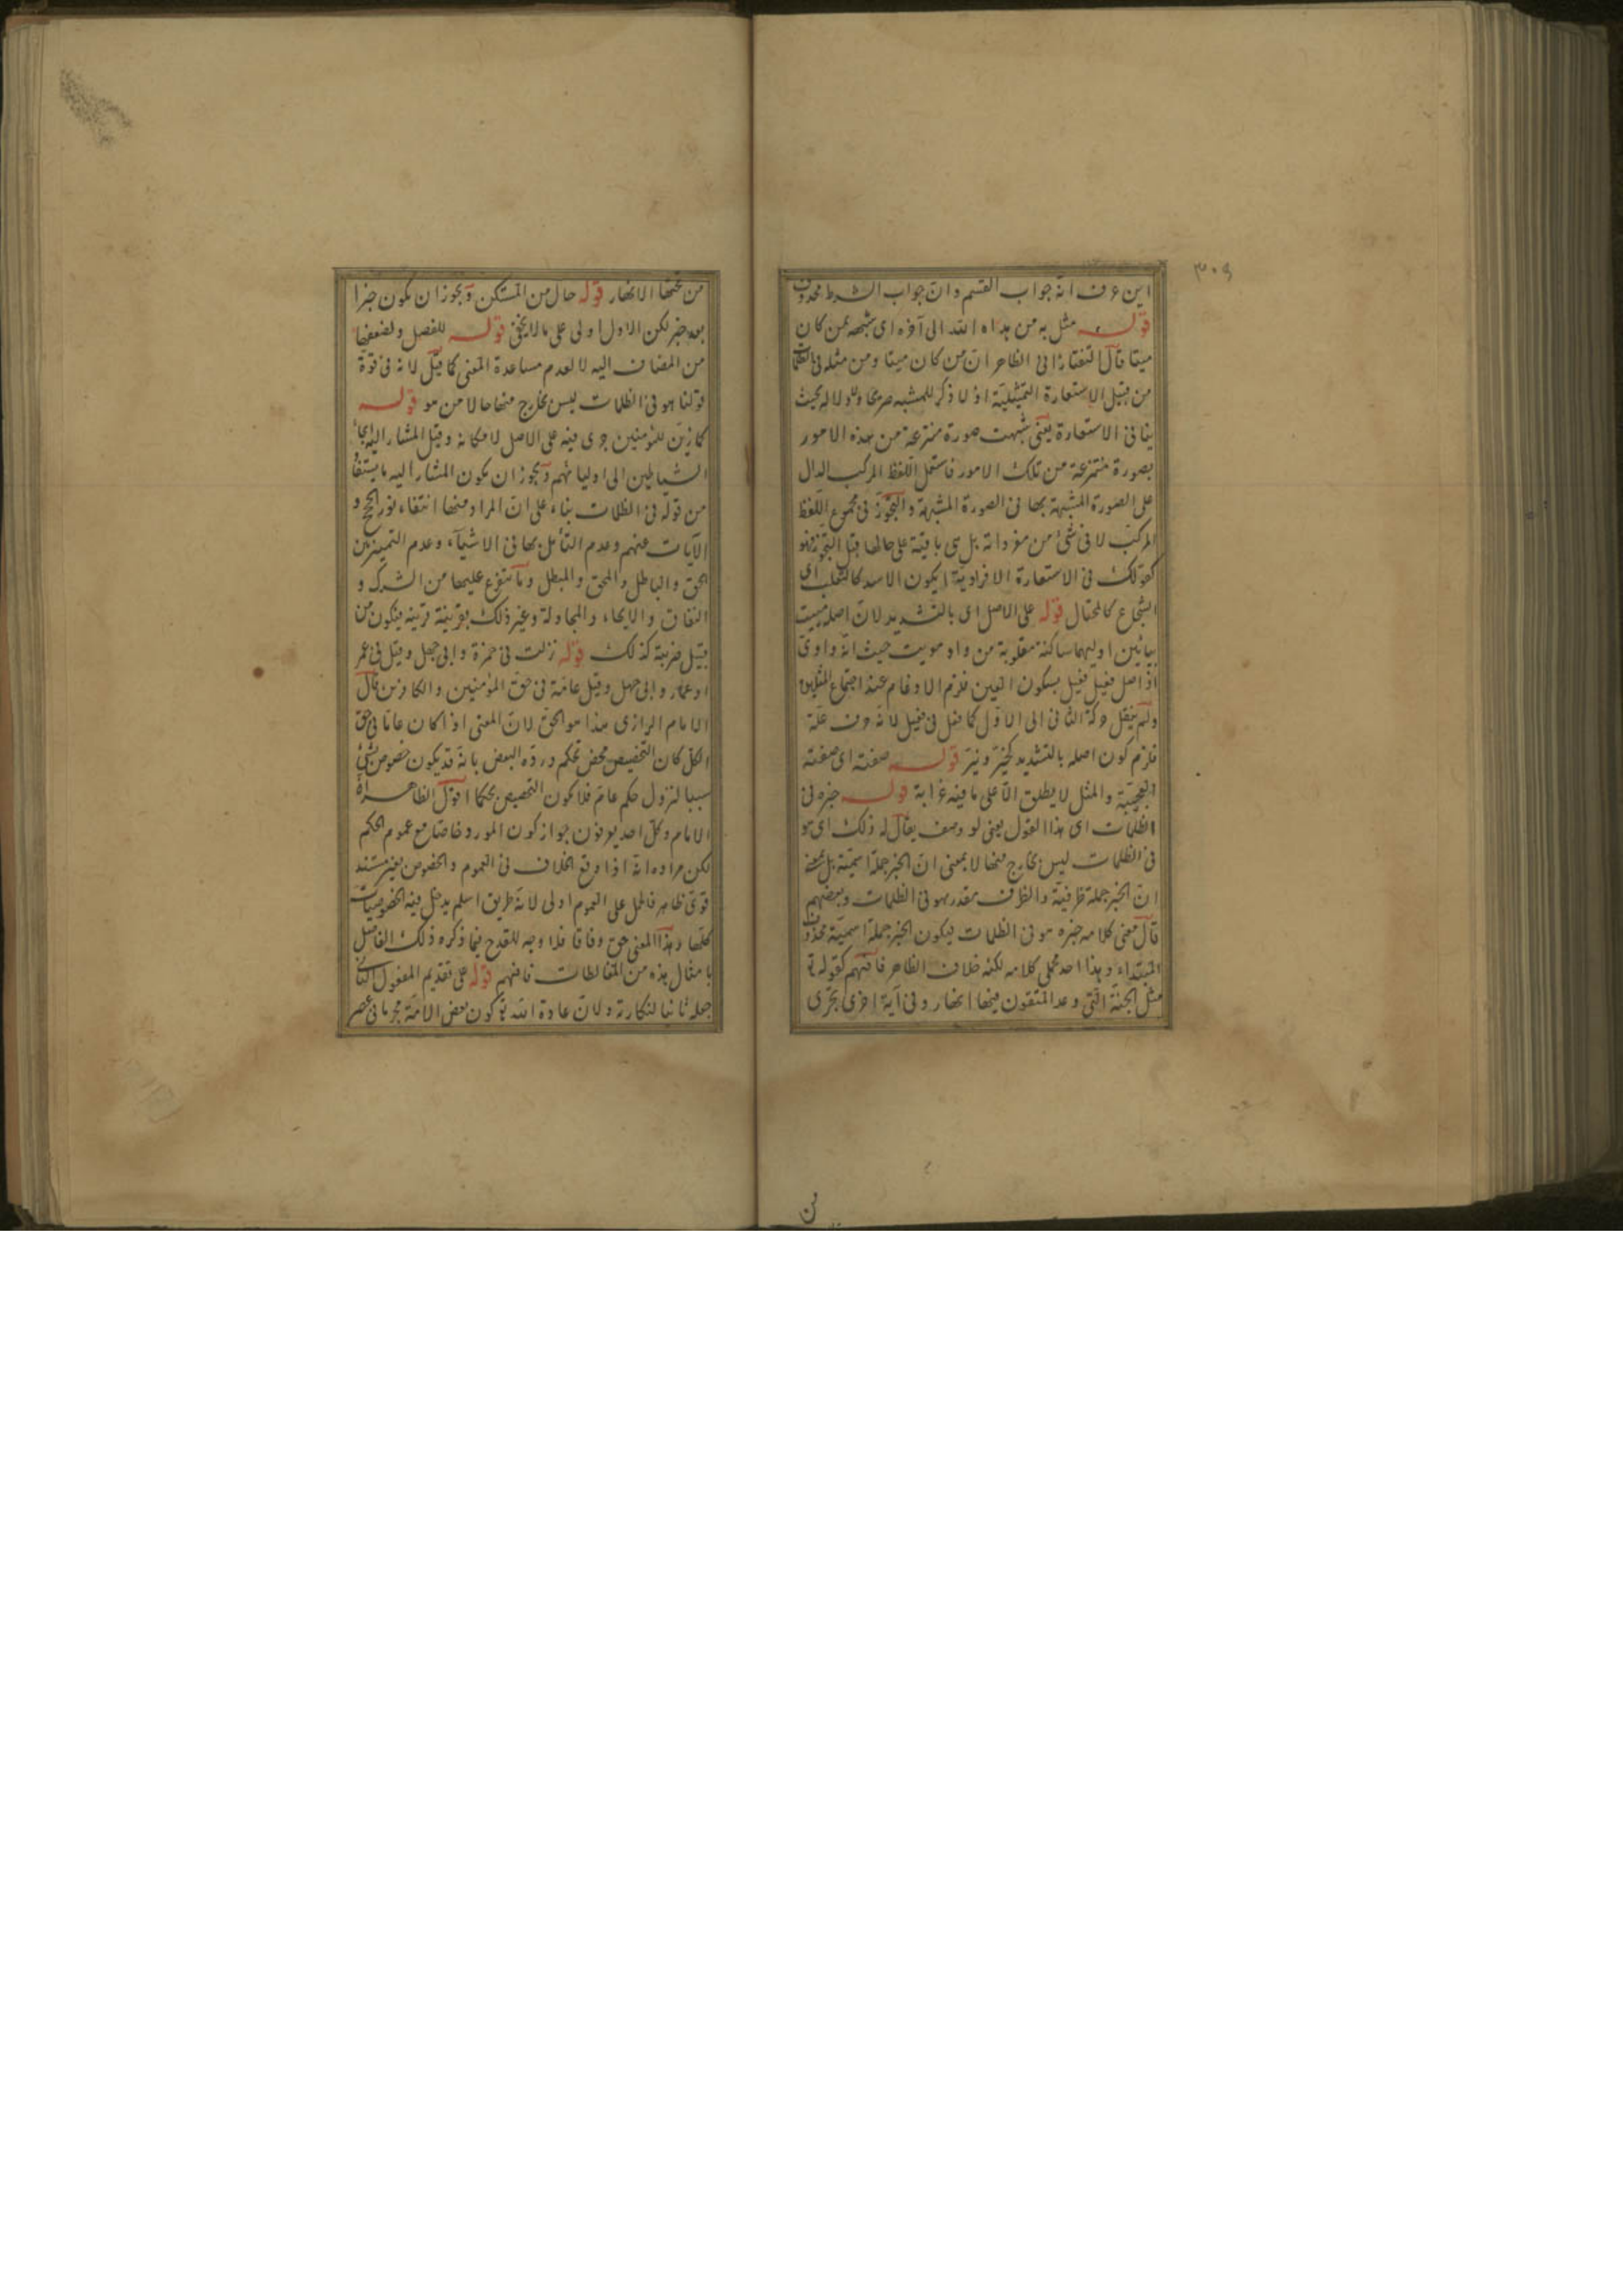 ٣٠٩
اين عرف انه جواب القسم وان جواب الشرط محذوف
قوله مثل به من هداه الله الى آخره اى شبهه بمن كان
ميتا قال التفتازانى الظاهر ان من كان ميتا ومن مثله فى الظلمات
من قبيل الاستعارة التمثيلية اذ لا ذكر للمشبه صريحا ولا دلالة بحيث
ينافى الاستعارة يعنى شبهت صورة منتزعة من هذه الامور
بصورة منتزعة من تلك الامور فاستعمل اللفظ المركب الدال
على الصورة المشبهة بها فى الصورة المشبهة والتجوز فى مجموع اللفظ
المركب لا فى شئ من مفرداته بل هى باقية على حالها قبل التجوز فهو
كقولك فى الاستعارة الافرادية ايكون الاسد كالثعلب اى
الشجاع كالمحتال قوله على الاصل اى بالتشديد لان اصله ميت
بيائين اوليهما ساكنة مقلوبة من واو مويت حيث انه واوى
اذ اصل فعيل فعيل بسكون العين فلزم الادغام عند اجتماع المثلين
ولم ينقل حركة الثانى الى الاول كما فعل فى فعيل لانه حرف علة
فلزم كون اصله بالتشديد كخير ونير قوله صفته اى صفته
العجيبة والمثل لا يطلق الا على ما فيه غرابة قوله خبره فى
الظلمات اى هذا القول يعنى لو وصف يقال له ذلك اى هو
فى الظلمات ليس بخارج منها لا بمعنى ان الخبر جملة اسمية بل بمعنى
ان الخبر جملة ظرفية والظرف مقدر بهو فى الظلمات وبعضهم
قال معنى كلامه خبره هو فى الظلمات فيكون الخبر جملة اسمية محذوف
المبتداء وهذا احد محملى كلامه لكنه خلاف الظاهر فافهم كقوله تعالى
مثل الجنة التى وعد المتقون فيها انهار وفى آية اخرى تجرى
من
من تحتها الانهار قوله حال من المستكن ويجوز ان يكون خبرا
بعد خبر لكن الاول اولى على ما لا يخفى قوله للفصل ولضعفها
من المضاف اليه لا لعدم مساعدة المعنى كما قيل لانه فى قوة
قولنا هو فى الظلمات ليس بخارج منها حالا من هو قوله
كما زين للمؤمنين جرى فيه على الاصل لامكانه وقيل المشار اليه ايحاء
الشياطين الى اوليائهم ويجوز ان يكون المشار اليه ما يستفاد
من قوله فى الظلمات بناء على ان المراد منها انتفاء نور الحجج و
الآيات عنهم وعدم التأمل بها فى الاشيآء وعدم التمييز بين
الحق والباطل والمحق والمبطل وما يتفرع عليها من الشرك و
النفاق والايحاء والمجادلة وغير ذلك بقرينة قرينه فيكون من
قبيل ضربته كذلك قوله نزلت فى حمزة وابى جهل وقيل فى عمر
او عمار وابى جهل وقيل عامة فى حق المؤمنين والكافرين قال
الامام الرازى هذا هو الحق لان المعنى اذا كان عاما فى حق
الكل كان التخصيص محض تحكم ورده البعض بانه قد يكون خصوص شئ
سببا لنزول حكم عام فلا يكون التخصيص تحكما اقول الظاهر ان
الامام وكل احد يعرفون جواز كون المورد خاصا مع عموم الحكم
لكن مراده انه اذا وقع الخلاف فى العموم والخصوص بغير مستند
قوى ظاهر فالحمل على العموم اولى لانه طريق اسلم يدخل فيه الخصوصيات
كلها وهذا المعنى حق وفاقا فلا وجه للقدح فيما ذكره ذلك الفاضل
بامثال هذه من المغالطات فافهم قوله على تقديم المفعول الثانى
جعله ثانيا لنكارته ولان عادة الله تعالى كون بعض الامة مجرما فى عصر